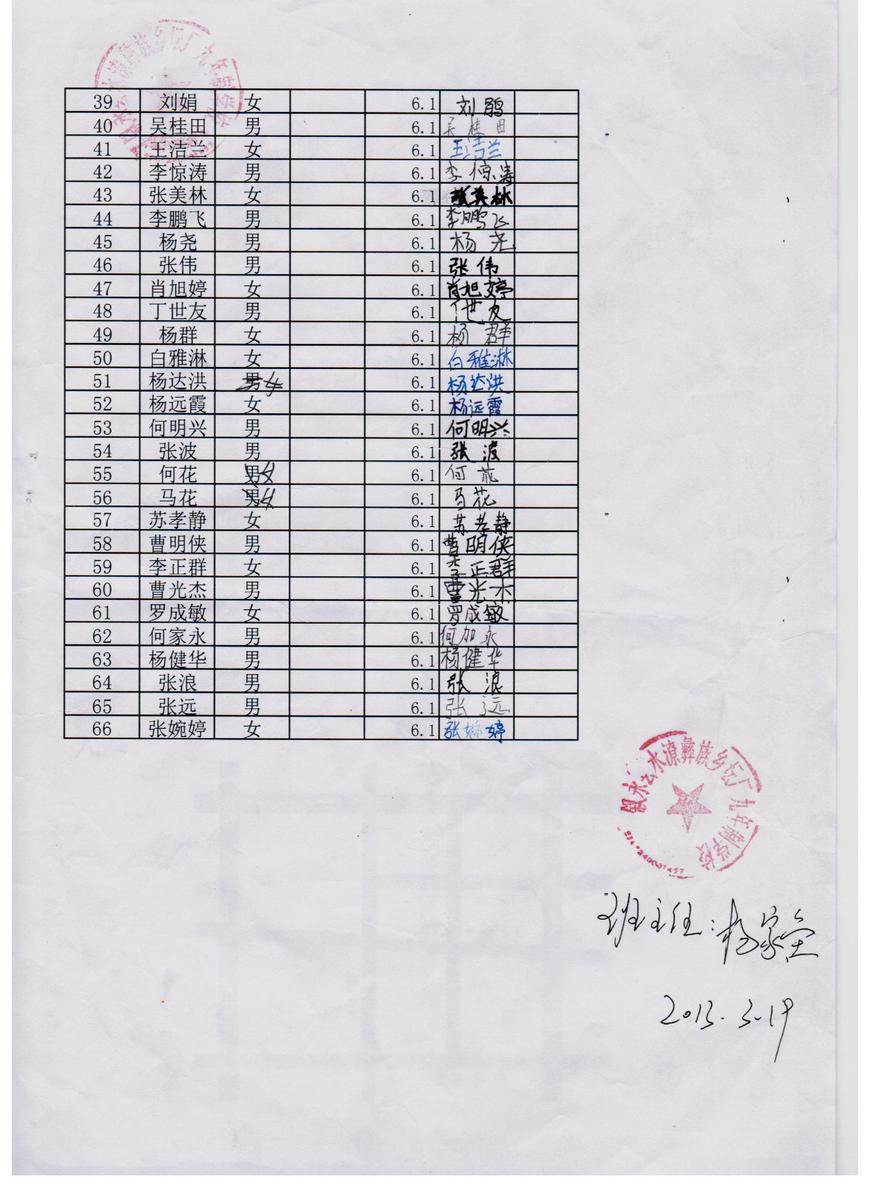 39 刘娟 女 6.1 刘鹃
40 吴桂田 男 6.1 吴桂田
41 王洁兰 女 6.1 王洁兰
42 李惊涛 男 6.1 李惊涛
43 张美林 女 6.1 张美林
44 李鹏飞 男 6.1 李鹏飞
45 杨尧 男 6.1 杨尧
46 张伟 男 6.1 张伟
47 肖旭婷 女 6.1 肖旭婷
48 丁世友 男 6.1 丁世友
49 杨群 女 6.1 杨群
50 白雅淋 女 6.1 白雅淋
51 杨达洪 男女 6.1 杨达洪
52 杨远霞 女 6.1 杨远霞
53 何明兴 男 6.1 何明兴
54 张波 男 6.1 张波
55 何花 男女 6.1 何花
56 马花 男女 6.1 马花
57 苏孝静 女 6.1 苏孝静
58 曹明侠 男 6.1 曹明侠
59 李正群 女 6.1 李正群
60 曹光杰 男 6.1 曹光杰
61 罗成敏 女 6.1 罗成敏
62 何家永 男 6.1 何加永
63 杨健华 男 6.1 杨健华
64 张浪 男 6.1 张浪
65 张远 男 6.1 张远
66 张婉婷 女 6.1 张婉婷
叙永县水潦彝族乡坛厂九年制学校
班主任:杨家全
2013.3.19